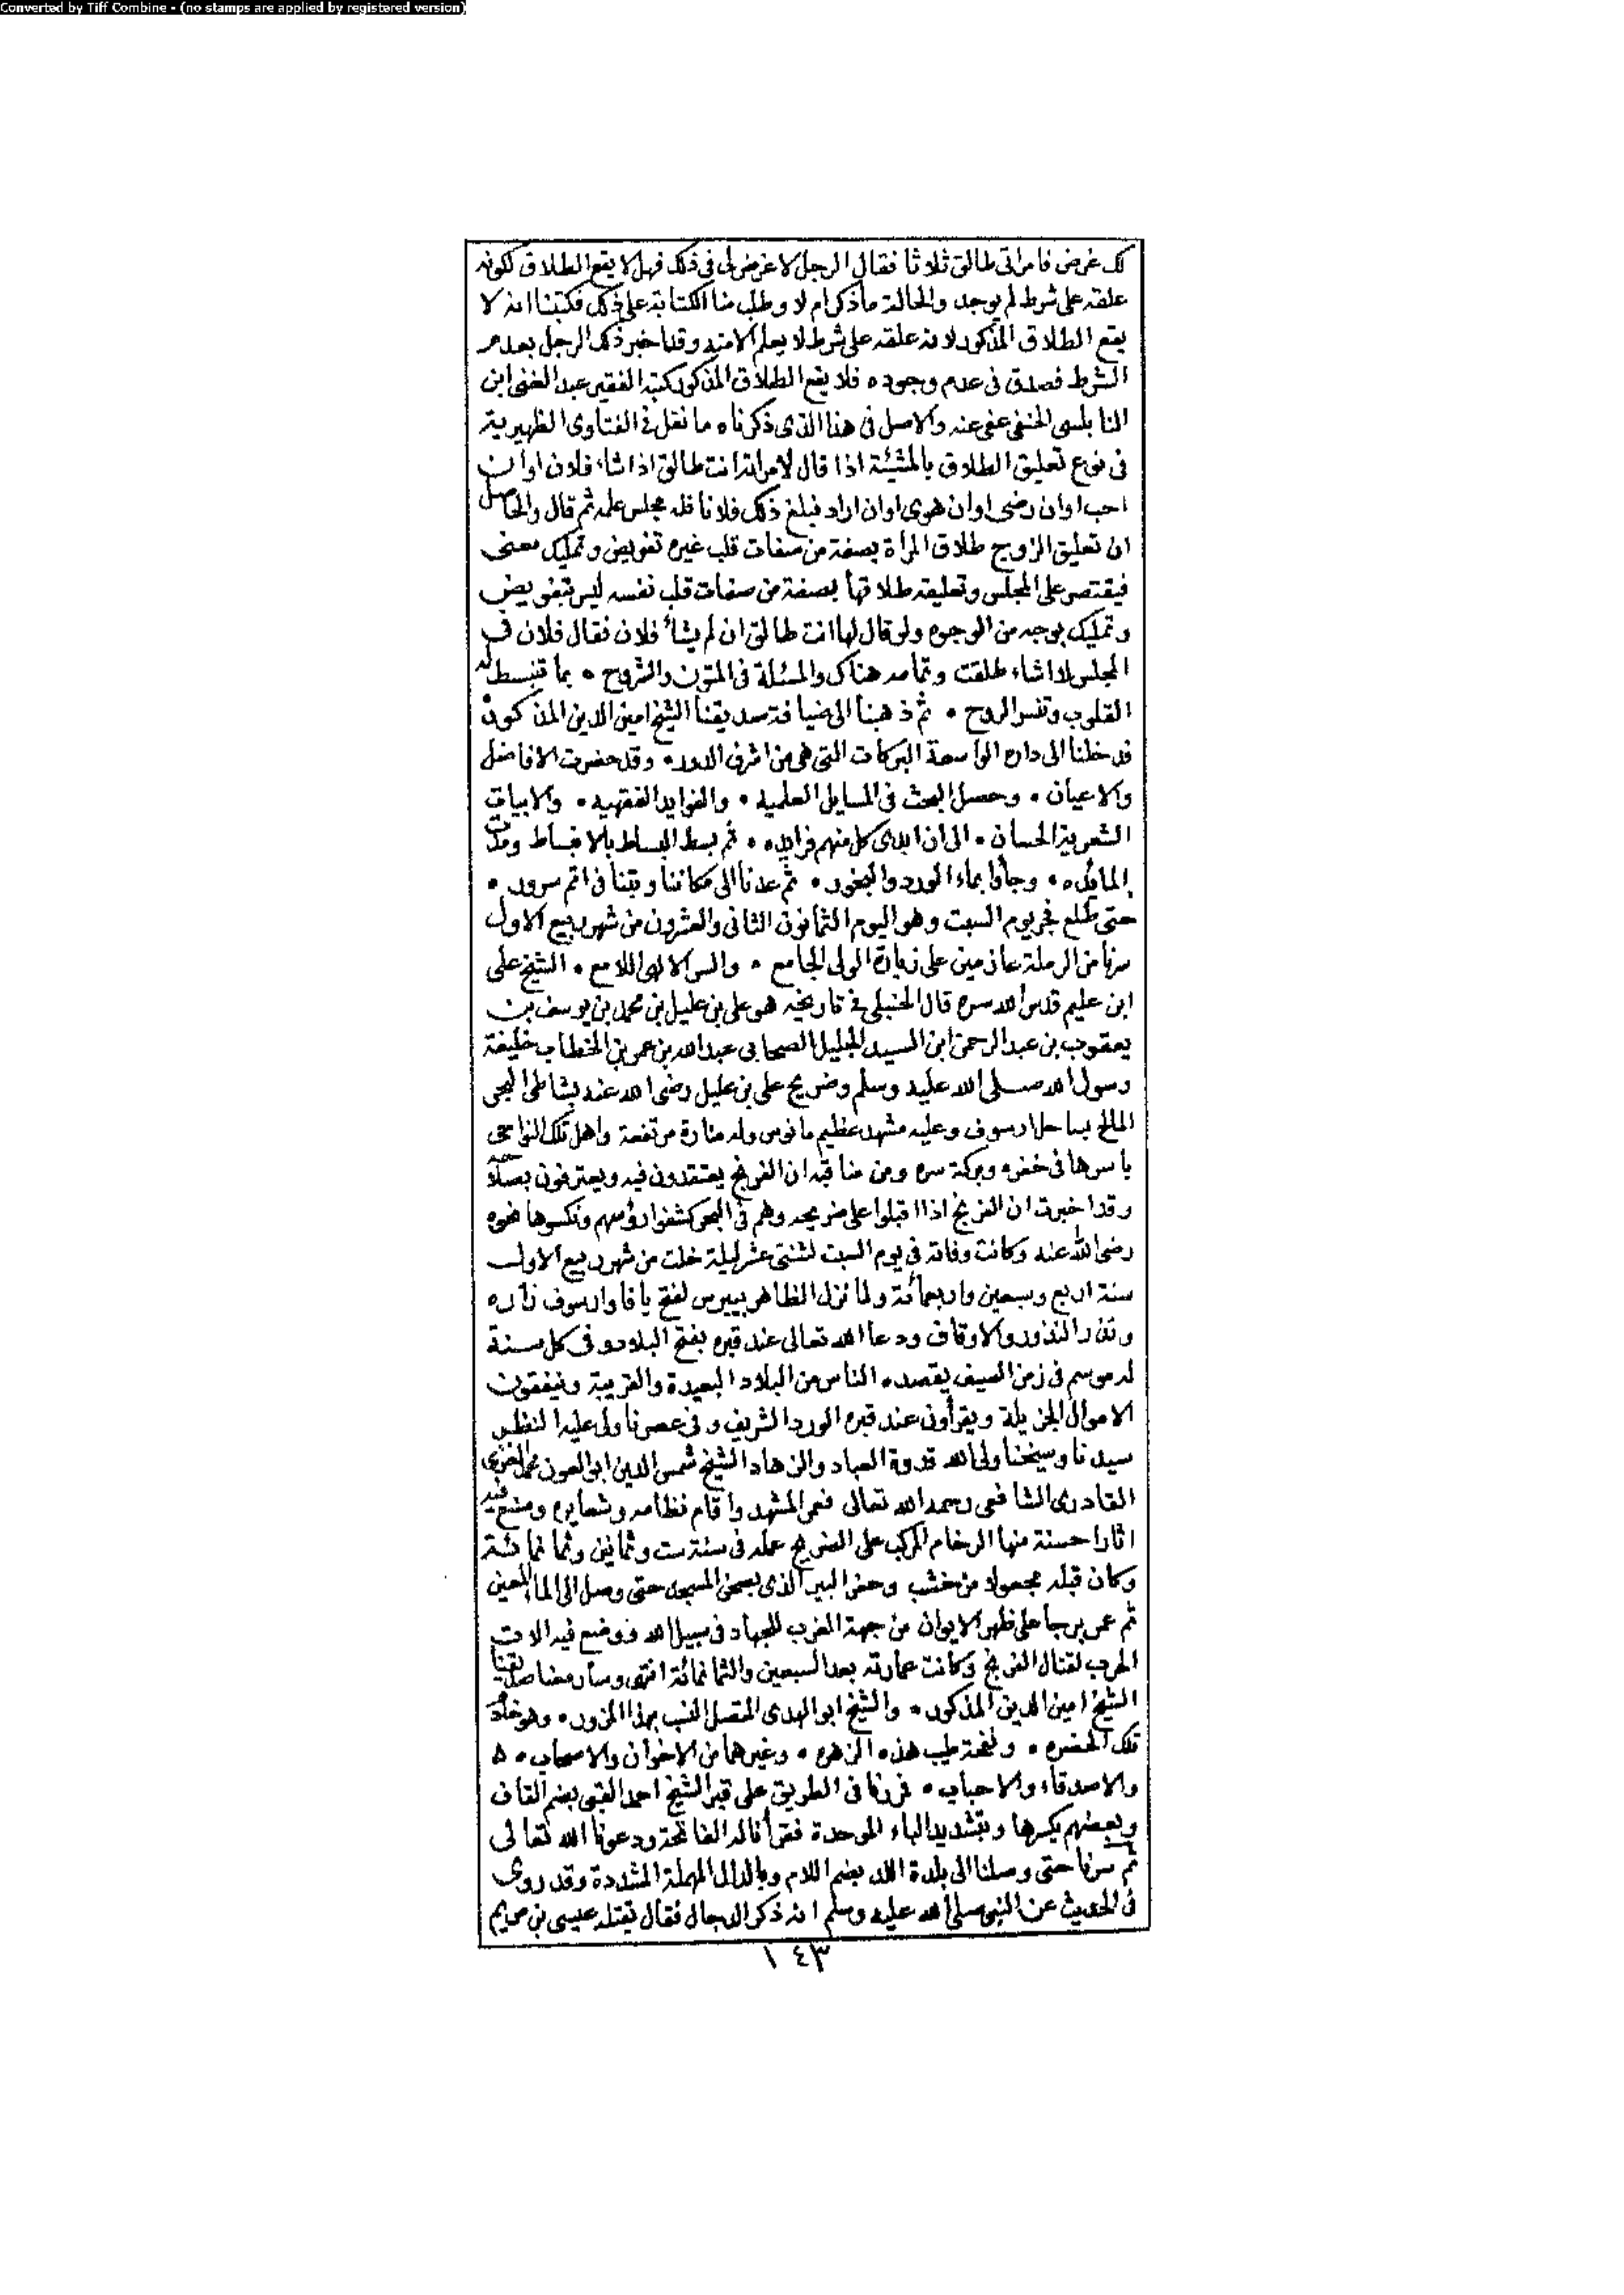 Converted by Tiff Combine - (no stamps are applied by registered version)
لك غرض فامراتى طالق ثلاثا فقال الرجل لا غرض لى فى ذلك فهل لا يقع الطلاق لكونه
علقه على شرط لم يوجد والحالة ما ذكر ام لا وطلب منا الكتابة على ذلك فكتبنا انه لا
يقع الطلاق المذكور لانه علقه على شرط لا يعلم الا منه وقد اخبر ذلك الرجل بعدم
الشرط فصدق فى عدم وجوده فلا يقع الطلاق المذكور كتبه الفقير عبد الغنى ابن
النابلسى الحنفى عفى عنه والاصل فى هذا الذى ذكرناه ما نقل فى الفتاوى الظهيرية
فى نوع تعليق الطلاق بالمشيئة اذا قال لامراته انت طالق اذا شاء فلان او ان
احب او ان رضى او ان هوى او ان اراد فبلغ ذلك فلانا فله مجلس علمه ثم قال والحاصل
ان تعليق الزوج طلاق المراة بصفة من صفات قلب غيره تفويض وتمليك معنى
فيقتصر على المجلس وتعليقه طلاقها بصفة من صفات قلب نفسه ليس بتفويض
وتمليك بوجه من الوجوه ولو قال لها انت طالق ان لم يشأ فلان فقال فلان فى
المجلس لا اشاء طلقت وتمامه هناك والمسئلة فى المتون والشروح • بما تنبسط له
القلوب وتسر الروح • ثم ذهبنا الى ضيافة صديقنا الشيخ امين الدين المذكور
فدخلنا الى داره الواسعة البركات التى هى من اشرف الدور • وقد حضرت الافاضل
والاعيان • وحصل البحث فى المسايل العلمية • والفوايد الفقهيه • والابيات
الشعرية الحسان • الى ان ابدى كل منهم فرايده • ثم بسط البساط بالانبساط ومدت
المائده • وجاؤا بماء الورد والبخور • ثم عدنا الى مكاننا وبتنا فى اتم سرور •
حتى طلع فجر يوم السبت وهو اليوم الثمانون الثانى والعشرون من شهر ربيع الاول
سرنا من الرملة عازمين على زيارة الولى الجامع • والسر الالهى اللامع • الشيخ على
ابن عليم قدس الله سره قال الحنبلى فى تاريخه هو على بن عليل بن محمد بن يوسف بن
يعقوب بن عبد الرحمن ابن السيد الجليل الصحابى عبد الله بن عمر بن الخطاب خليفة
رسول الله صلى الله عليه وسلم وضريح على بن عليل رضى الله عنه بشاطى البحر
المالح بساحل ارسوف وعليه مشهد عظيم مانوس وله منارة مرتفعة واهل تلك النواحى
باسرها فى خفره وبركة سره ومن مناقبه ان الفرنج يعتقدون فيه ويعترفون بصلاحه
وقد اخبرت ان الفرنج اذا اقبلوا على ضريحه وهم فى البحر كشفوا رؤسهم ونكسوها نحوه
رضى الله عنه وكانت وفاته فى يوم السبت لثنتى عشر ليلة خلت من شهر ربيع الاول
سنة اربع وسبعين واربعمائة ولما نزل الظاهر بيبرس لفتح يافا وارسوف زاره
ونذر النذور والاوقاف ودعا الله تعالى عند قبره بفتح البلاد وفى كل سنة
له موسم فى زمن الصيف يقصده الناس من البلاد البعيدة والقريبة وينفقون
الاموال الجزيلة ويقرأون عند قبره الورد الشريف وفى عصرنا ولى عليه النظر
سيدنا وشيخنا ولى الله قدوة العباد والزهاد الشيخ شمس الدين ابو العون محمد الغزى
القادرى الشافعى رحمه الله تعالى فعمر المشهد واقام نظامه وشعايره وصنع فيه
اثارا حسنة منها الرخام المركب على الضريح عمله فى سنة ست وثمانين وثمانمائة
وكان قبله مجعولا من خشب وحفر البير الذى بصحن المسجد حتى وصل الى الماء المعين
ثم عمر برجا على ظهر الايوان من جهة الغرب للجهاد فى سبيل الله ووضع فيه الات
الحرب لقتال الفرنج وكانت عمارته بعد السبعين والثمانمائة انتهى وسار معنا صديقنا
الشيخ امين الدين المذكور • والشيخ ابو الهدى المتصل النسب بهذا المزور • وهو خادم
تلك الحضره • ونفحة طيب هذه الزهره • وغيرهما من الاخوان والاصحاب • ه
والاصدقاء والاحباب • فمررنا فى الطريق على قبر الشيخ احمد القبى بضم القاف
وبعضهم يكسرها وبتشديد الباء الموحدة فقرأنا له الفاتحة ودعونا الله تعالى
ثم سرنا حتى وصلنا الى بلدة اللد بضم اللام وبالدال المهملة المشددة وقد روى
فى الحديث عن النبى صلى الله عليه وسلم انه ذكر الدجال فقال يقتله عيسى بن مريم
١٤٣